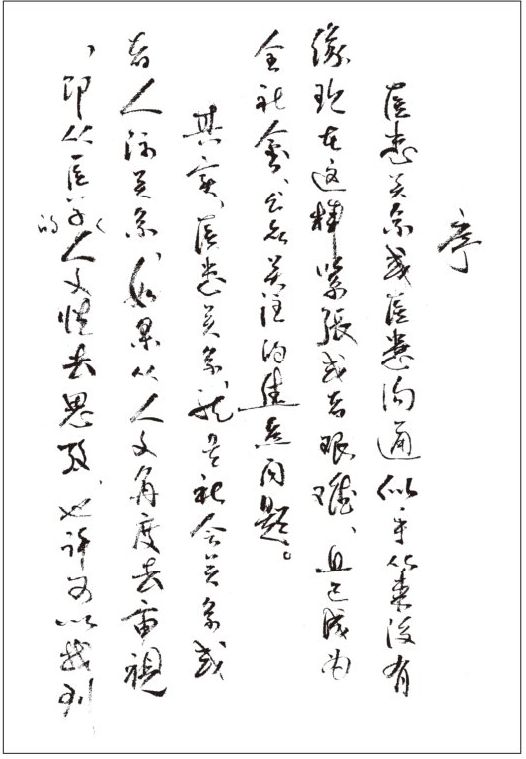 序
医患关系或医患沟通似乎从来没有
像现在这样紧张或者艰难、且已成为
全社会、公众关注的焦点问题。
其实、医患关系、就是社会关系或
者人际关系、如果从人文角度去审视
、即从医学的人文性去思考、也许可以找到